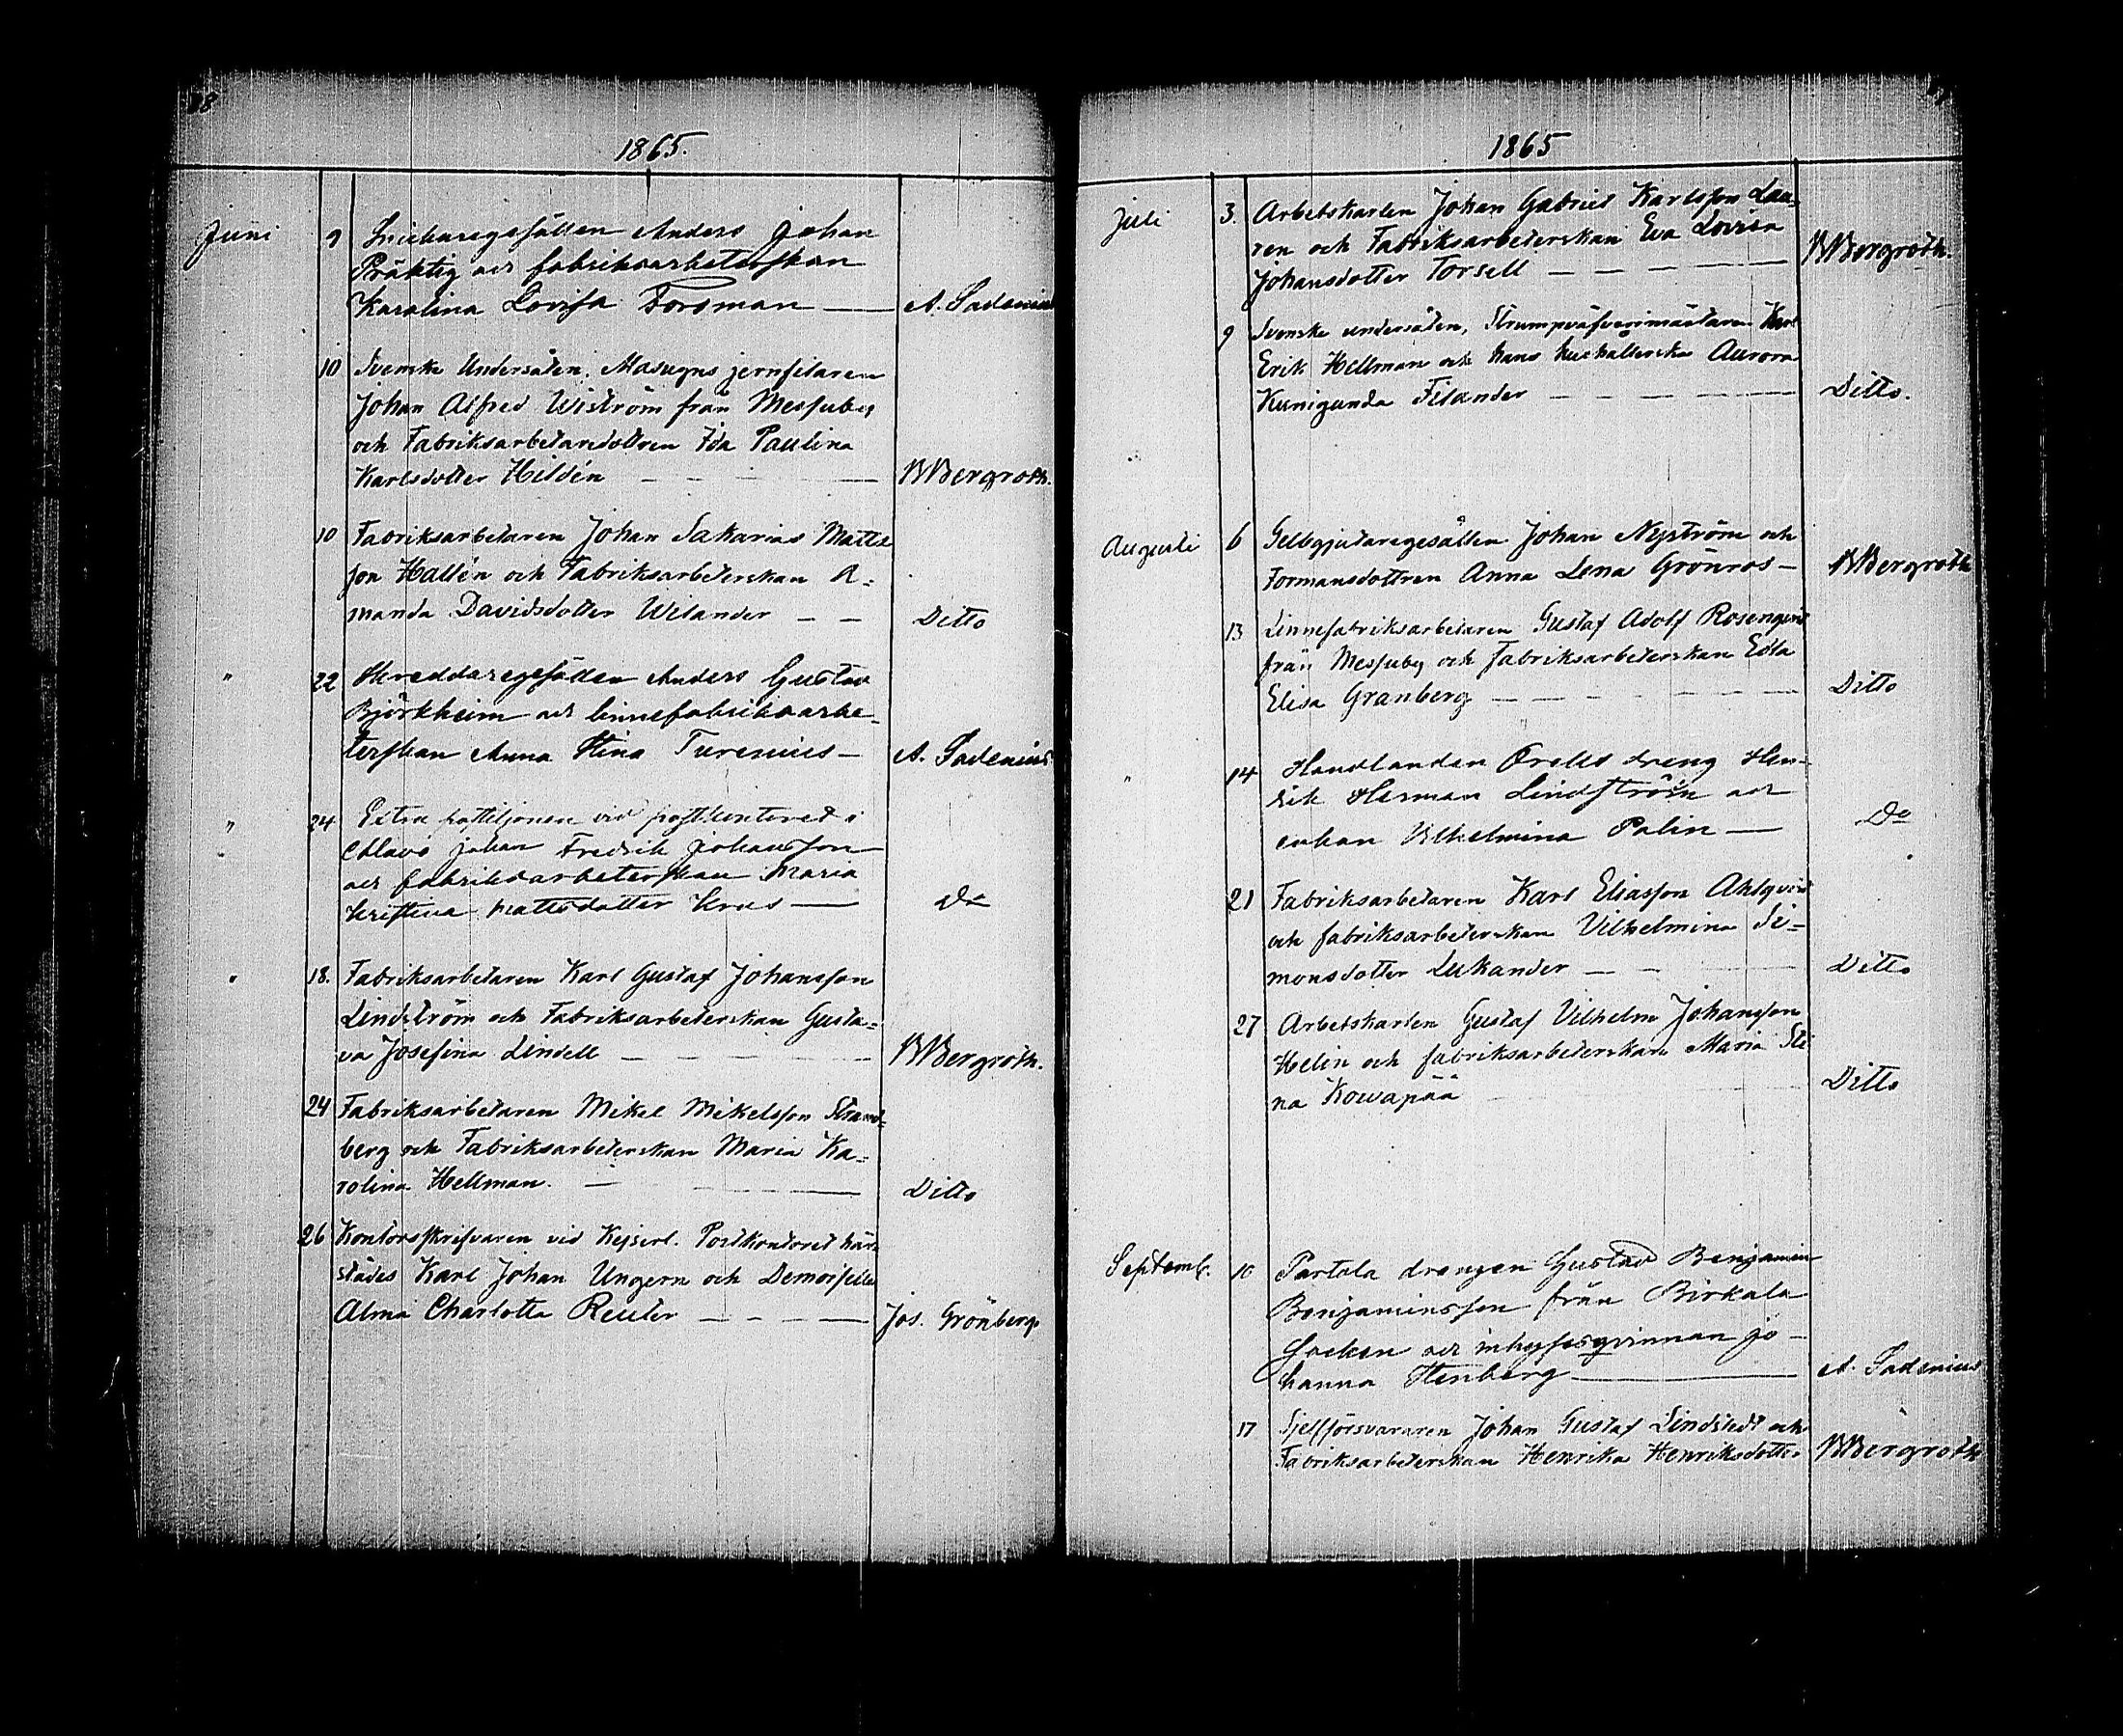 1865.
Juni 9 Snickaregesällen Anders Johan
Präktig och fabriksarbeterskan
Karolina Lovisa Forsman — A. Sadenius
10 Svenske Undersåten, Masugns jernfilaren
Johan Alfred Wiström från Messuby
och Fabriksarbetaredottren Ida Paulina
Karlsdotter Hildén — — — BBergroth.
10 Fabriksarbetaren Johan Sakarias Matts
son Hallén och Fabriksarbeterskan A=
manda Davidsdotter Wilander — — Ditto
" 22 Skreddaregesällen Anders Gustav
Björkheim och linnefabriksarbe-
terskan Anna Stina Turenius — A. Sadenius
" 24 Extra postiljonen vid postkontoret i
Johan Fredrik Johansson
och fabriksarbeterskan Maria
Kristina Mattsdotter Krus — Do
" 18. Fabriksarbetaren Karl Gustaf Johansson
Lindström och Fabriksarbeterskan Gusta=
va Josefina Lindell — — — BBergroth.
24 Fabriksarbetaren Mikel Mikelsson Strand=
berg och Fabriksarbeterskan Maria Ka=
rolina Hellman. — — — Ditto
26 Kontorsskrifvaren vid Kejserl. Postkontoret här
städes Karl Johan Ungern och Demoiselle
Alma Charlotta Reuter — — — Jos. Grönberg
1865
Juli 3. Arbetskarlen Johan Gabriel Karlsson Lau=
ren och Fabriksarbeterskan Eva Lovisa
Johansdotter Torsell — — — — BBergroth.
9 Svenske undersåten, Strumpväfverimästaren Karl
Erik Hellman och hans hushållerska Aurora
Kunigunda Filander — — — — Ditto.
Augusti 6 Gelbgjutaregesällen Johan Nyström och
Formansdottren Anna Lena Grönros — BBergroth
13 Linnefabriksarbetaren Gustaf Adolf Rosenqvist
från Messuby och Fabriksarbeterskan Edla
Elisa Granberg — — — — Ditto
" 14 Handlanden Orells dreng Hen-
rik Herman Lindström och
enkan Vilhelmina Palin — Do
21 Fabriksarbetaren Karl Eliasson Ahlqvist
och fabriksarbeterskan Vilhelmina Si=
monsdotter Lukander — — — Ditto
27 Arbetskarlen Gustaf Vilhelm Johansson
Helin och fabriksarbeterskan Maria Sti
na Kowapää — — Ditto
Septemb. 10 Partola drengen Gustav Benjamin
Benjaminsson från Birkala
Socken och inhysesqvinnan Jo-
hanna Stenberg — A. Sadenius
17 Sjelfförsvararen Johan Gustaf Lindstedt och
Fabriksarbeterskan Henrika Henriksdotter BBergroth